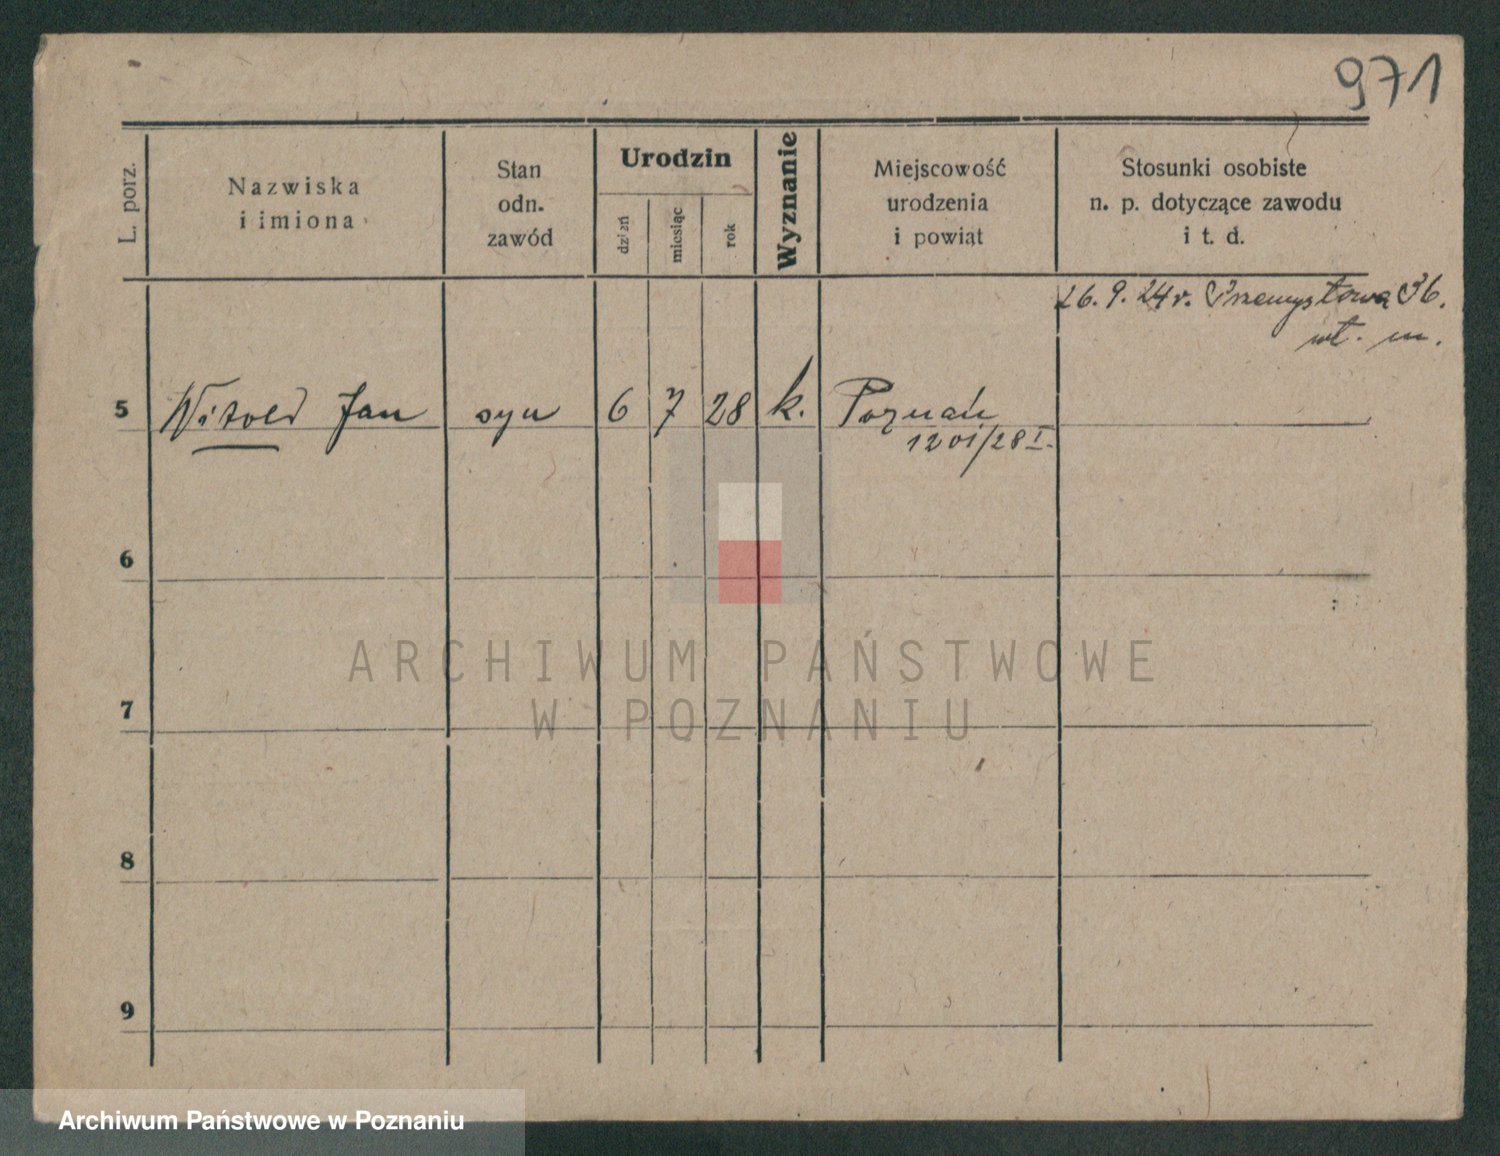 971
L. porz.
Nazwiska
i imiona
Stan
odn.
zawód
Urodzin
dzień
miesiąc
rok
Wyznanie
Miejscowość
urodzenia
i powiat
Stosunki osobiste
n. p. dotyczące zawodu
i t. d.
26. 9. 24 r. Przemysłowa 36.
wł. m.
5 Witold Jan syn 6 7 28 k. Poznań
1201/28 I.
6
7
8
9
ARCHIWUM PAŃSTWOWE
W POZNANIU
Archiwum Państwowe w Poznaniu